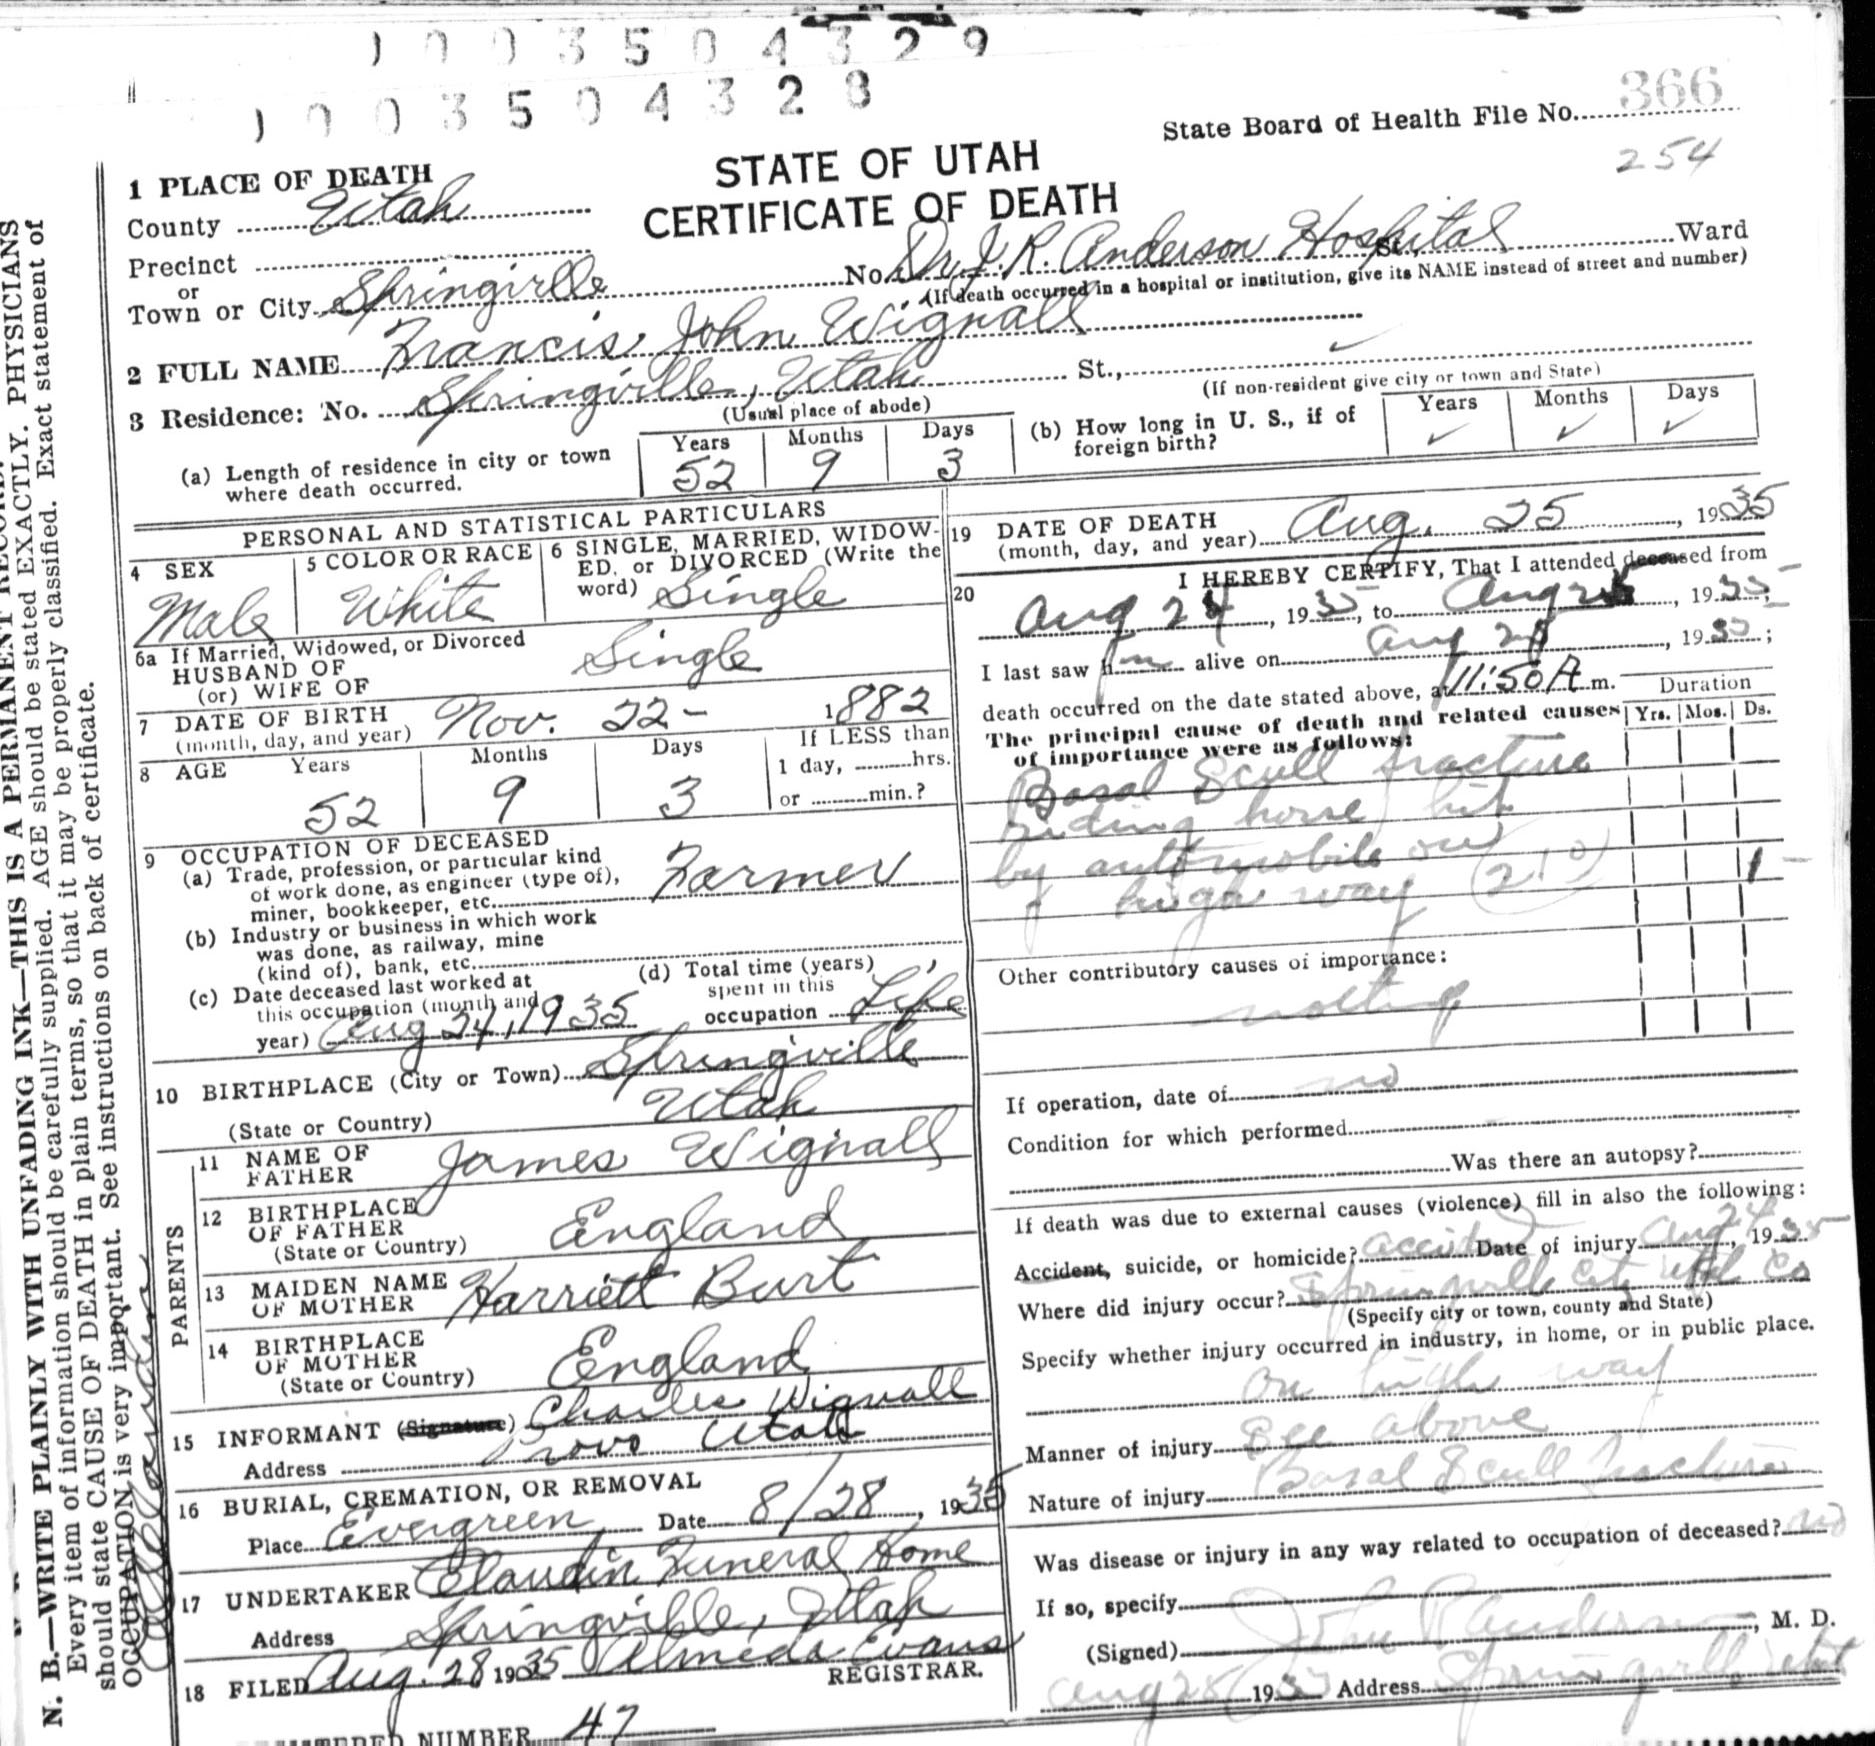 1003504329
1003504328
State Board of Health File No. 366
254
STATE OF UTAH
CERTIFICATE OF DEATH
1 PLACE OF DEATH
County Utah
Precinct
or
Town or City Springville No. Dr. J. R. Anderson Hospital St., Ward
(If death occurred in a hospital or institution, give its NAME instead of street and number)
2 FULL NAME Francis John Wignall
3 Residence: No. Springville, Utah St.,
(Usual place of abode)
(If non-resident give city or town and State)
(a) Length of residence in city or town where death occurred. Years 52 Months 9 Days 3
(b) How long in U. S., if of foreign birth? Years ✓ Months ✓ Days ✓
PERSONAL AND STATISTICAL PARTICULARS
4 SEX Male
5 COLOR OR RACE White
6 SINGLE, MARRIED, WIDOWED, or DIVORCED (Write the word) Single
6a If Married, Widowed, or Divorced
HUSBAND OF
(or) WIFE OF Single
7 DATE OF BIRTH
(month, day, and year) Nov. 22- 1882
8 AGE Years 52 Months 9 Days 3
If LESS than
1 day, hrs.
or min.?
9 OCCUPATION OF DECEASED
(a) Trade, profession, or particular kind
of work done, as engineer (type of),
miner, bookkeeper, etc. Farmer
(b) Industry or business in which work
was done, as railway, mine
(kind of), bank, etc.
(c) Date deceased last worked at
this occupation (month and
year) Aug 24, 1935
(d) Total time (years)
spent in this
occupation Life
10 BIRTHPLACE (City or Town) Springville
(State or Country) Utah
PARENTS
11 NAME OF FATHER James Wignall
12 BIRTHPLACE OF FATHER
(State or Country) England
13 MAIDEN NAME OF MOTHER Harriett Burt
14 BIRTHPLACE OF MOTHER
(State or Country) England
15 INFORMANT (Signature) Charles Wignall
Address Provo Utah
16 BURIAL, CREMATION, OR REMOVAL
Place Evergreen Date 8/28, 1935
17 UNDERTAKER Claudin Funeral Home
Address Springville, Utah
18 FILED Aug. 28 1935 Almeda Evans
REGISTRAR.
NUMBER 47
19 DATE OF DEATH
(month, day, and year) Aug. 25, 1935
20 I HEREBY CERTIFY, That I attended deceased from
Aug 24, 1935, to Aug 25, 1935;
I last saw him alive on Aug, 1935;
death occurred on the date stated above, at 11:50 A m.
The principal cause of death and related causes
of importance were as follows:
Duration
Yrs. Mos. Ds.
Basal Scull fracture
Riding horse hit
by automobile on
high way (210) 1
Other contributory causes of importance:
nothing
If operation, date of no
Condition for which performed
Was there an autopsy?
If death was due to external causes (violence) fill in also the following:
Accident, suicide, or homicide? accident Date of injury Aug 24, 1935
Where did injury occur? Springville City Utah Co
(Specify city or town, county and State)
Specify whether injury occurred in industry, in home, or in public place.
on high way
Manner of injury See above
Nature of injury Basal Scull fracture
Was disease or injury in any way related to occupation of deceased? no
If so, specify
(Signed) John R Anderson, M. D.
Aug 28 193 Address Springville Utah
N. B.—WRITE PLAINLY WITH UNFADING INK—THIS IS A PERMANENT RECORD.
Every item of information should be carefully supplied. AGE should be stated EXACTLY. PHYSICIANS
should state CAUSE OF DEATH in plain terms, so that it may be properly classified. Exact statement of
OCCUPATION is very important. See instructions on back of certificate.